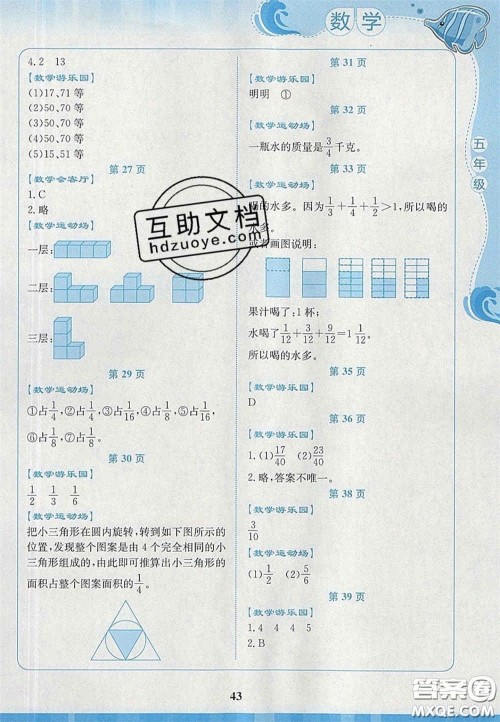 数学
五年级
4.2 13
【数学游乐园】
(1)17、71等
(2)50、70等
(3)50、70等
(4)50、70等
(5)15、51等
第27页
【数学会客厅】
1.C
2.略
【数学运动场】
一层:
二层:
三层:
第29页
【数学运动场】
①占1/4,②占1/4,③占1/16,④占1/8,⑤占1/16,
⑥占1/8,⑦占1/8。
第30页
【数学游乐园】
1/2 1/3 1/6
【数学运动场】
把小三角形在圆内旋转,转到如下图所示的
位置,发现整个图案是由4个完全相同的小
三角形组成的,由此即可推算出小三角形的
面积占整个图案面积的1/4。
第31页
【数学游乐园】
明明 ①
第32页
【数学运动场】
一瓶水的质量是3/4千克。
第33页
【数学
喝的水多。因为1/3+1/4+1/2>1,所以喝的
水多。
或者画图说明:
果汁喝了:1杯;
水喝了1/12+3/12+9/12=1 1/12。
所以喝的水多。
第35页
【数学游乐园】
D
第36页
【数学游乐园】
1.(1)17/40 (2)23/40
2.略,答案不唯一。
第38页
【数学游乐园】
3/10
【数学运动场】
(1)1/2 (2)5/6
第39页
【数学游乐园】
1.4 4 5
2.B
43
互助文档
hdzuoye.com
答案圈
MXQE.COM